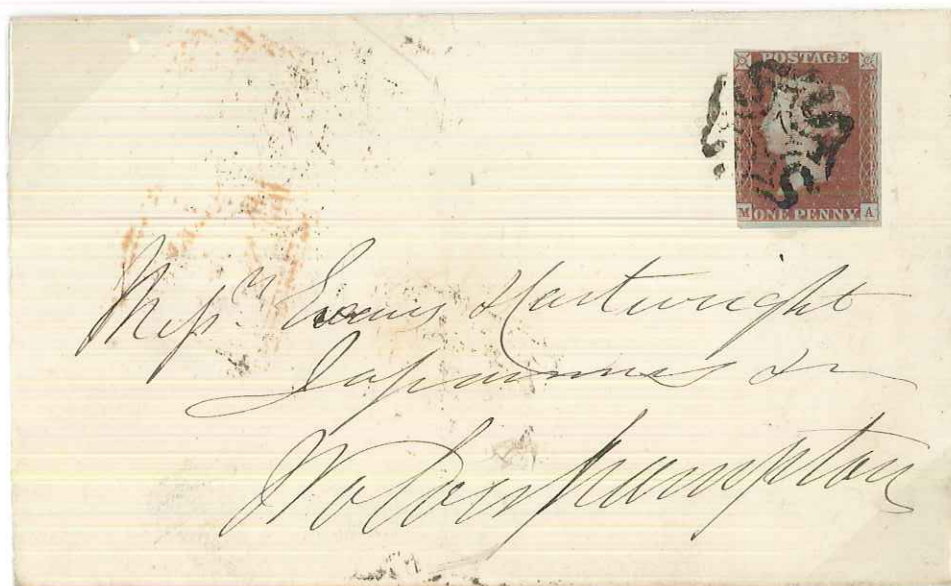 POSTAGE
M ONE PENNY A
Messrs Evans & Cartwright
Japanners &c
Wolverhampton